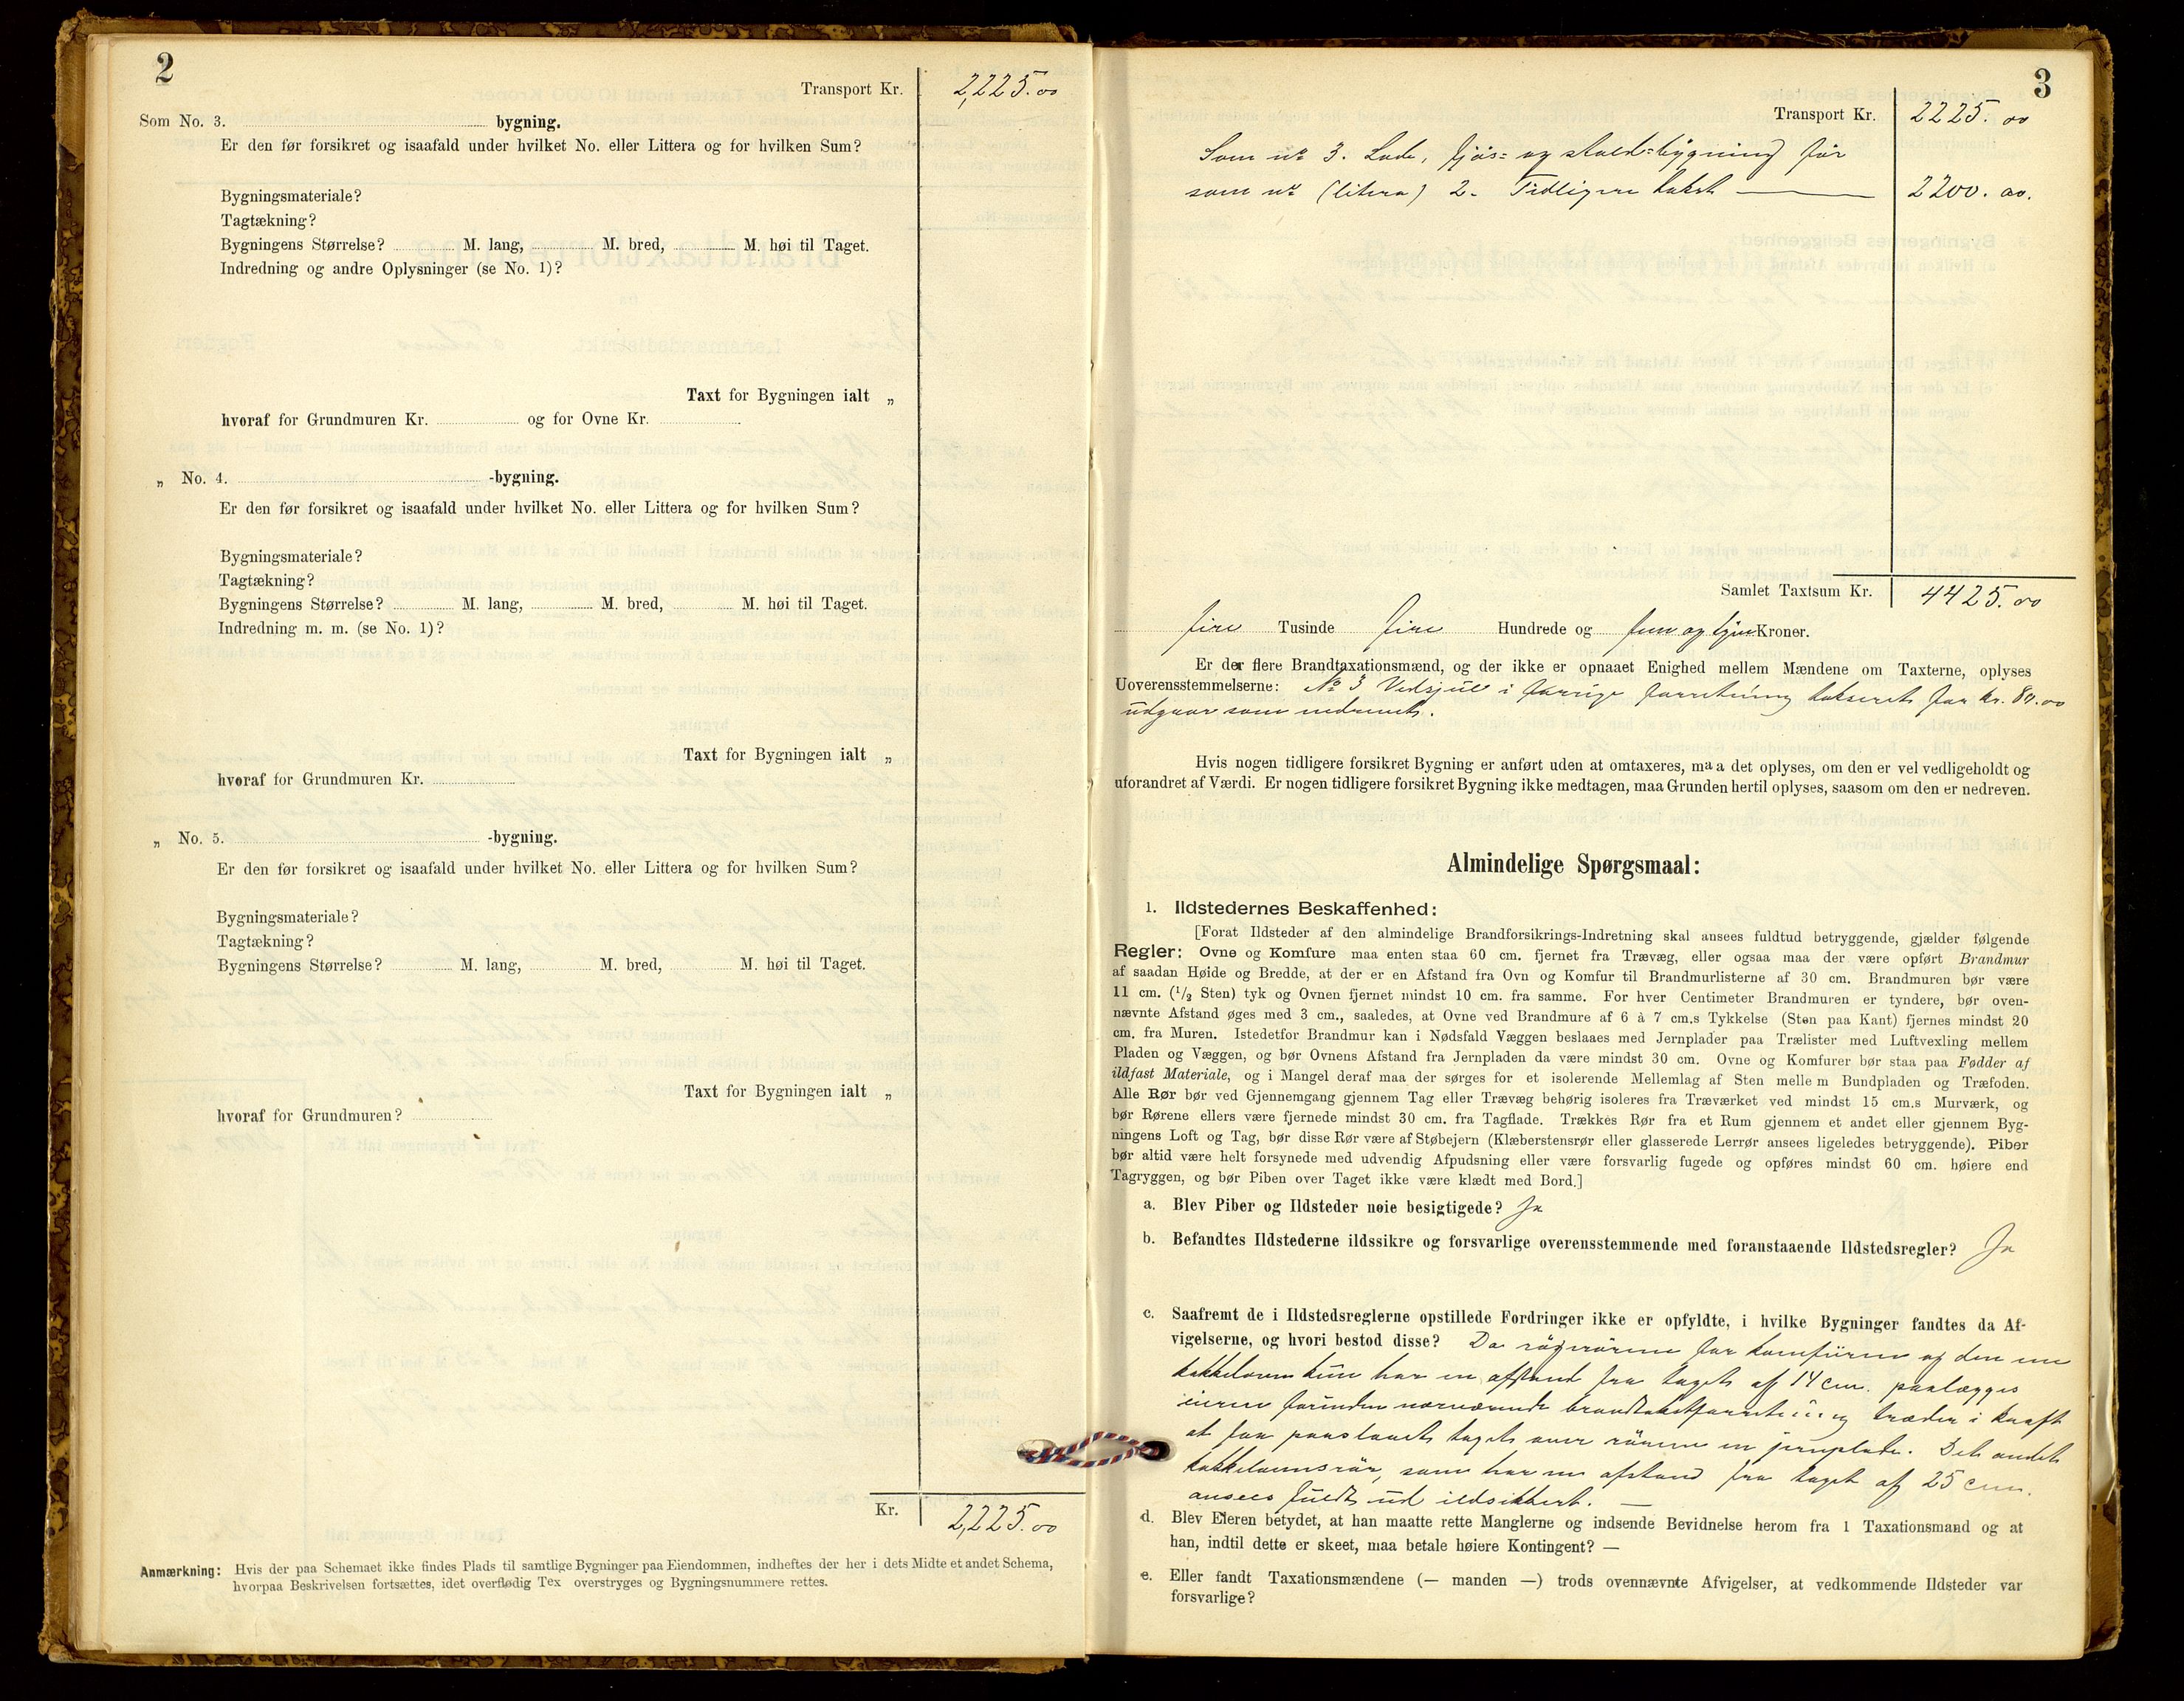 2
Transport Kr. 2,225.00
Som No. 3. bygning.
Er den før forsikret og isaafald under hvilket No. eller Littera og for hvilken Sum?
Bygningsmateriale?
Tagtækning?
Bygningens Størrelse? M. lang, M. bred, M. høi til Taget.
Indredning og andre Oplysninger (se No. 1)?
Taxt for Bygningen ialt „
hvoraf for Grundmuren Kr. og for Ovne Kr.
„ No. 4. -bygning.
Er den før forsikret og isaafald under hvilket No. eller Littera og for hvilken Sum?
Bygningsmateriale?
Tagtækning?
Bygningens Størrelse? M. lang, M. bred, M. høi til Taget.
Indredning m. m. (se No. 1)?
Taxt for Bygningen ialt „
hvoraf for Grundmuren Kr.
„ No. 5. -bygning.
Er den før forsikret og isaafald under hvilket No. eller Littera og for hvilken Sum?
Bygningsmateriale?
Tagtækning?
Bygningens Størrelse? M. lang, M. bred, M. høi til Taget.
Taxt for Bygningen ialt „
hvoraf for Grundmuren?
Kr. 2,225.00
Anmærkning: Hvis der paa Schemaet ikke findes Plads til samtlige Bygninger paa Eiendommen, indheftes der her i dets Midte et andet Schema,
hvorpaa Beskrivelsen fortsættes, idet overflødig Tex overstryges og Bygningsnummere rettes.
3
Transport Kr. 2225.00
Som no 3. Lade, fjøs- og stald-bygning før
som no (litera) 2. Tidligere takst — 2200.00.
Samlet Taxtsum Kr. 4425.00
fire Tusinde fire Hundrede og fem og tyve Kroner.
Er der flere Brandtaxationsmænd, og der ikke er opnaaet Enighed mellem Mændene om Taxterne, oplyses
Uoverensstemmelserne: No 3 Vedsjul i forrige forretning takseret for kr. 80.00
udgaar som nedrevet.
Hvis nogen tidligere forsikret Bygning er anført uden at omtaxeres, maa det oplyses, om den er vel vedligeholdt og
uforandret af Værdi. Er nogen tidligere forsikret Bygning ikke medtagen, maa Grunden hertil oplyses, saasom om den er nedreven.
Almindelige Spørgsmaal:
1. Ildstedernes Beskaffenhed:
[Forat Ildsteder af den almindelige Brandforsikrings-Indretning skal ansees fuldtud betryggende, gjælder følgende
Regler: Ovne og Komfure maa enten staa 60 cm. fjernet fra Trævæg, eller ogsaa maa der være opført Brandmur
af saadan Høide og Bredde, at der er en Afstand fra Ovn og Komfur til Brandmurlisterne af 30 cm. Brandmuren bør være
11 cm. (1/2 Sten) tyk og Ovnen fjernet mindst 10 cm. fra samme. For hver Centimeter Brandmuren er tyndere, bør oven-
nævnte Afstand øges med 3 cm., saaledes, at Ovne ved Brandmure af 6 à 7 cm.s Tykkelse (Sten paa Kant) fjernes mindst 20
cm. fra Muren. Istedetfor Brandmur kan i Nødsfald Væggen beslaaes med Jernplader paa Trælister med Luftvexling mellem
Pladen og Væggen, og bør Ovnens Afstand fra Jernpladen da være mindst 30 cm. Ovne og Komfurer bør staa paa Fødder af
ildfast Materiale, og i Mangel deraf maa der sørges for et isolerende Mellemlag af Sten mellem Bundpladen og Træfoden.
Alle Rør bør ved Gjennemgang gjennem Tag eller Trævæg behørig isoleres fra Træværket ved mindst 15 cm.s Murværk, og
bør Rørene ellers være fjernede mindst 30 cm. fra Tagflade. Trækkes Rør fra et Rum gjennem et andet eller gjennem Byg-
ningens Loft og Tag, bør disse Rør være af Støbejern (Klæberstensrør eller glasserede Lerrør ansees ligeledes betryggende). Piber
bør altid være helt forsynede med udvendig Afpudsning eller være forsvarlig fugede og opføres mindst 60 cm. høiere end
Tagryggen, og bør Piben over Taget ikke være klædt med Bord.]
a. Blev Piber og Ildsteder nøie besigtigede? Ja
b. Befandtes Ildstederne ildssikre og forsvarlige overensstemmende med foranstaaende Ildstedsregler? Ja
c. Saafremt de i Ildstedsreglerne opstillede Fordringer ikke er opfyldte, i hvilke Bygninger fandtes da Af-
vigelserne, og hvori bestod disse? Da røgrørene for komfuren og den ene
kakkelovn kun har en afstand fra taget af 14 cm. paalægges
eieren forinden nærværende brandtakstforretning træder i kraft
at faa paaslaaet taget over rørene en jernplade. Det andet
kakkelovnsrør, som har en afstand fra taget af 25 cm.
ansees fuldt ud ildsikkert. —
d. Blev Eieren betydet, at han maatte rette Manglerne og indsende Bevidnelse herom fra 1 Taxationsmand og at
han, indtil dette er skeet, maa betale høiere Kontingent? —
e. Eller fandt Taxationsmændene (— manden —) trods ovennævnte Afvigelser, at vedkommende Ildsteder var
forsvarlige?